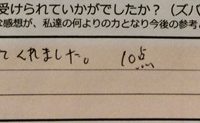 受けられていかがでしたか？（ズバ
な感想が、私達の何よりの力となり今後の参考
てくれました。 10点